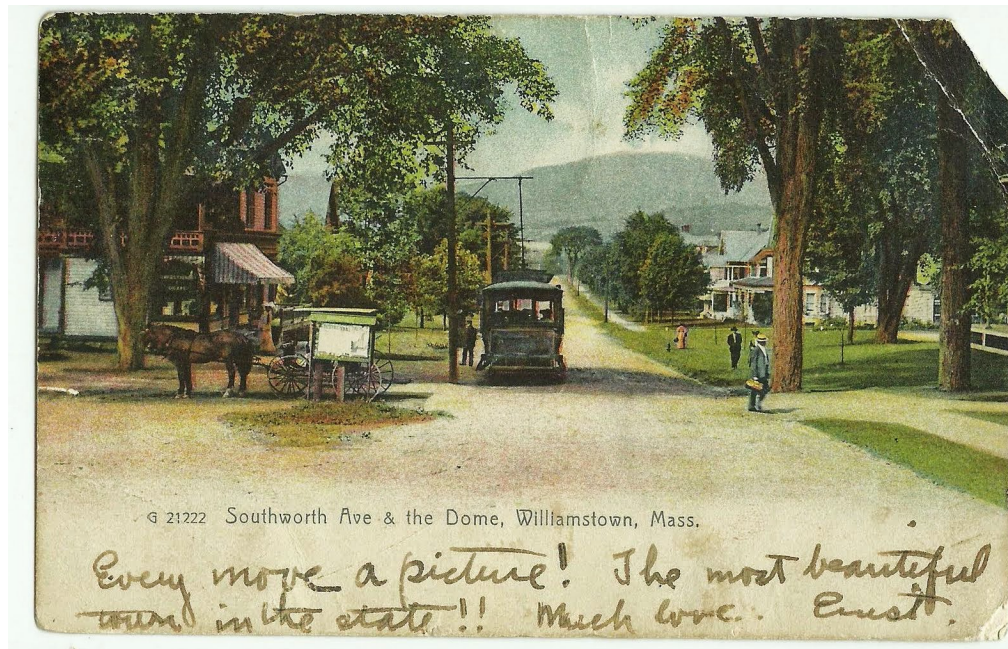 G 21222 Southworth Ave & the Dome, Williamstown, Mass.
Every move a picture! The most beautiful
town in the state!! Much love.. Ernst.